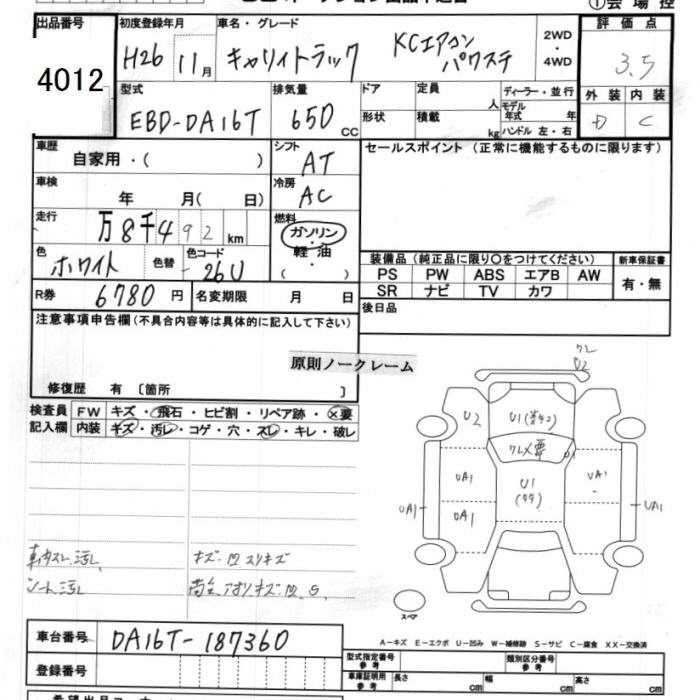 ① 会 場 控
出品番号 初度登録年月 車名・グレード 2WD・4WD 評 価 点
4012 H26 11月 キャリイトラック KCエアコン パワステ 3.5
型式 排気量 ドア 定員 人 ディーラー・並行 外 装 内 装
EBD-DA16T 650 CC 形状 積載 kg モデル年式 年 ハンドル 左・右 D C
車歴 シフト セールスポイント (正常に機能するものに限ります)
自家用・( ) AT
車検 冷房
年 月( 日) AC
走行 燃料
万8千492km ガソリン・軽油
色 色替 色コード ( )
ホワイト 26U
装備品(純正品に限り〇をつけてください) 新車保証書
PS PW ABS エアB AW 有・無
SR ナビ TV カワ
R券 6780円 名変期限 月 日 後日品
注意事項申告欄(不具合内容等は具体的に記入して下さい)
原則ノークレーム
修復歴 有 〔箇所 〕
検査員 FW キズ・飛石・ヒビ割・リペア跡・×要
記入欄 内装 キズ・汚レ・コゲ・穴・スレ・キレ・破レ
U2
U2 U1
U1
UA1 U1 UA1
UA1 UA1 UA1
キズ・凹 スリキズ
シート汚レ
スペア
A-キズ E-エクボ U-凹み W-補修跡 S-サビ C-腐食 XX-交換済
車台番号 DA16T-187360
型式指定番号 参考 類別区分番号 参考
登録番号
車庫証明用 参考 長さ cm 幅 cm 高さ cm